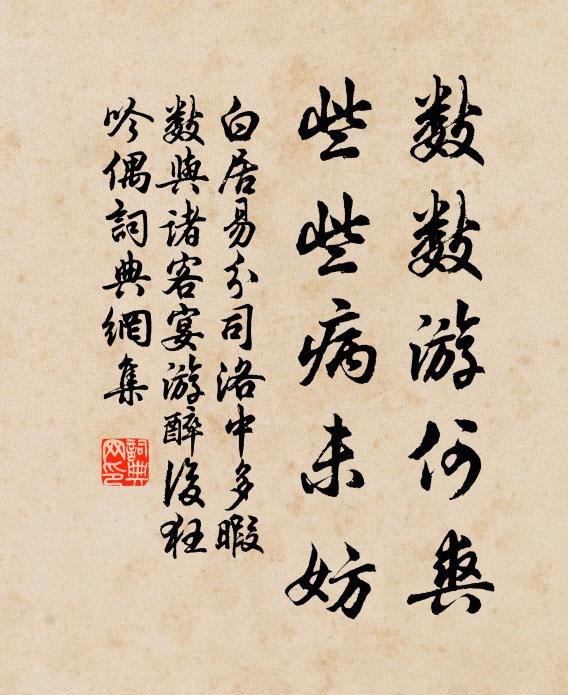 数数游何爽
些些病未妨
白居易分司洛中多暇
数與诸客宴游醉後狂
吟偶詞典網集
詞典網印